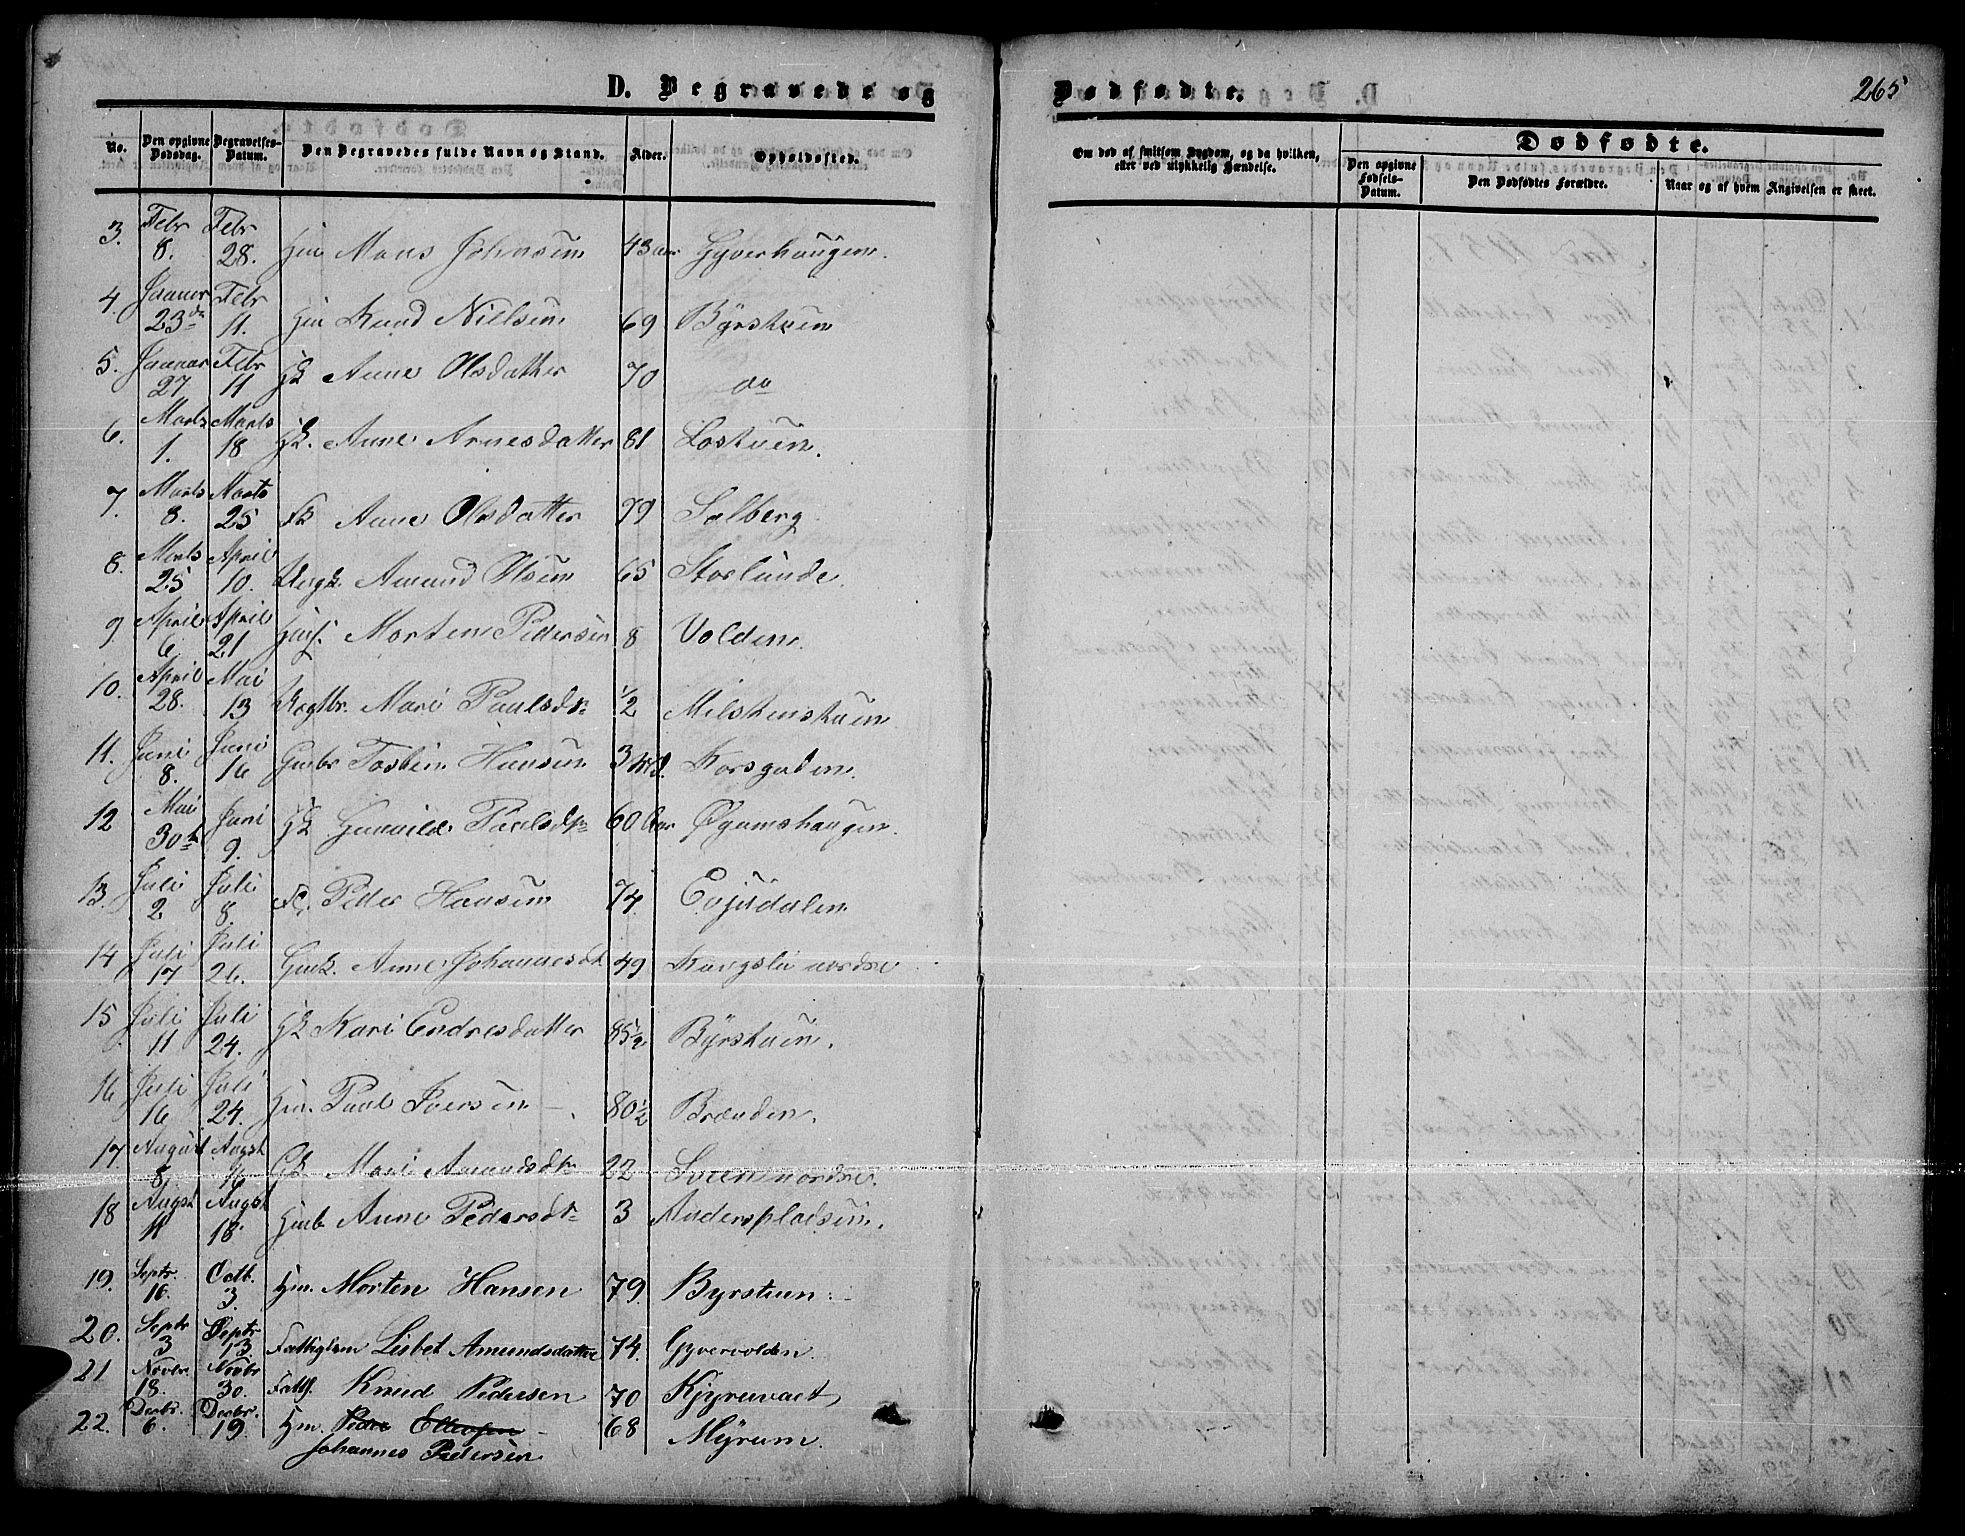 D. Begravede og
Dødfødte.
265
No.
Den opgivne Dødsdag.
Begravelses-Datum.
Den Begravedes fulde Navn og Stand.
Alder.
Opholdssted.
Om død af smitsom Sygdom, og da hvilken,
eller ved ulykkelig Hændelse.
Dødfødte.
Den opgivne Fødsels-Datum.
Den Dødfødtes Forældre.
Naar og af hvem Angivelsen er skeet.
3. Febr 8. Febr 28. Hm Mons Johnsen 43 aar Gyverhaugen.
4. Januar 23de Febr 11. Hm Knud Nielsen 69 Byrstuen
5. Januar 27 Febr 11 Anne Olsdatter 70 do
6. Marts 1. Marts 18 Anne Arnesdatter 81 Lostuen.
7. Marts 8. Marts 25 Anne Olsdatter 79 Solberg
8. Marts 25 April 10. Amund Olsen 65 Storlunde.
9 April 6 April 21 Morten Pedersen 8 Volden.
10. April 28. Mai 13 Mari Paulsdr 1/2 Milstenstuen
11. Juni 8. Juni 16 Gmbr Tosten Hansen 3 Korsgaden.
12 Mai 30te Juni 9. Gunild Paulsdr 60 Aar Øyumshaugen.
13. Juli 2 Juli 8. Peder Hansen 74. Evjudalen
14 Juli 17 Juli 26. Gmk. Anne Johannesd 49 Kongsli nordre
15 Juli 11 Juli 24. Kari Endresdatter 85 1/2 Byrstuen.
16 Juli 16 Juli 24. Hm. Paul Iversen 80 1/2 Brænden.
17. August 8 Augst 16 Mari Amundsdr 22 Sveen nordre.
18 Augst 11 Augst 18. Anne Pedersdr 3 Anderspladsen.
19. Septr. 16. Octb. 3. Hm. Morten Hansen 79. Byrstuen.
20. Septr 3 Septr 13. Fattiglem Lisbet Amundsdatter 74. Gyvervolden.
21 Novbr. 18. Novbr 30. Fattl. Knud Pedersen 70
22. Decbr. 6. Decbr. 19. Hm. Peder Ellevsen 68 Myrum.
Johannes Pedersen